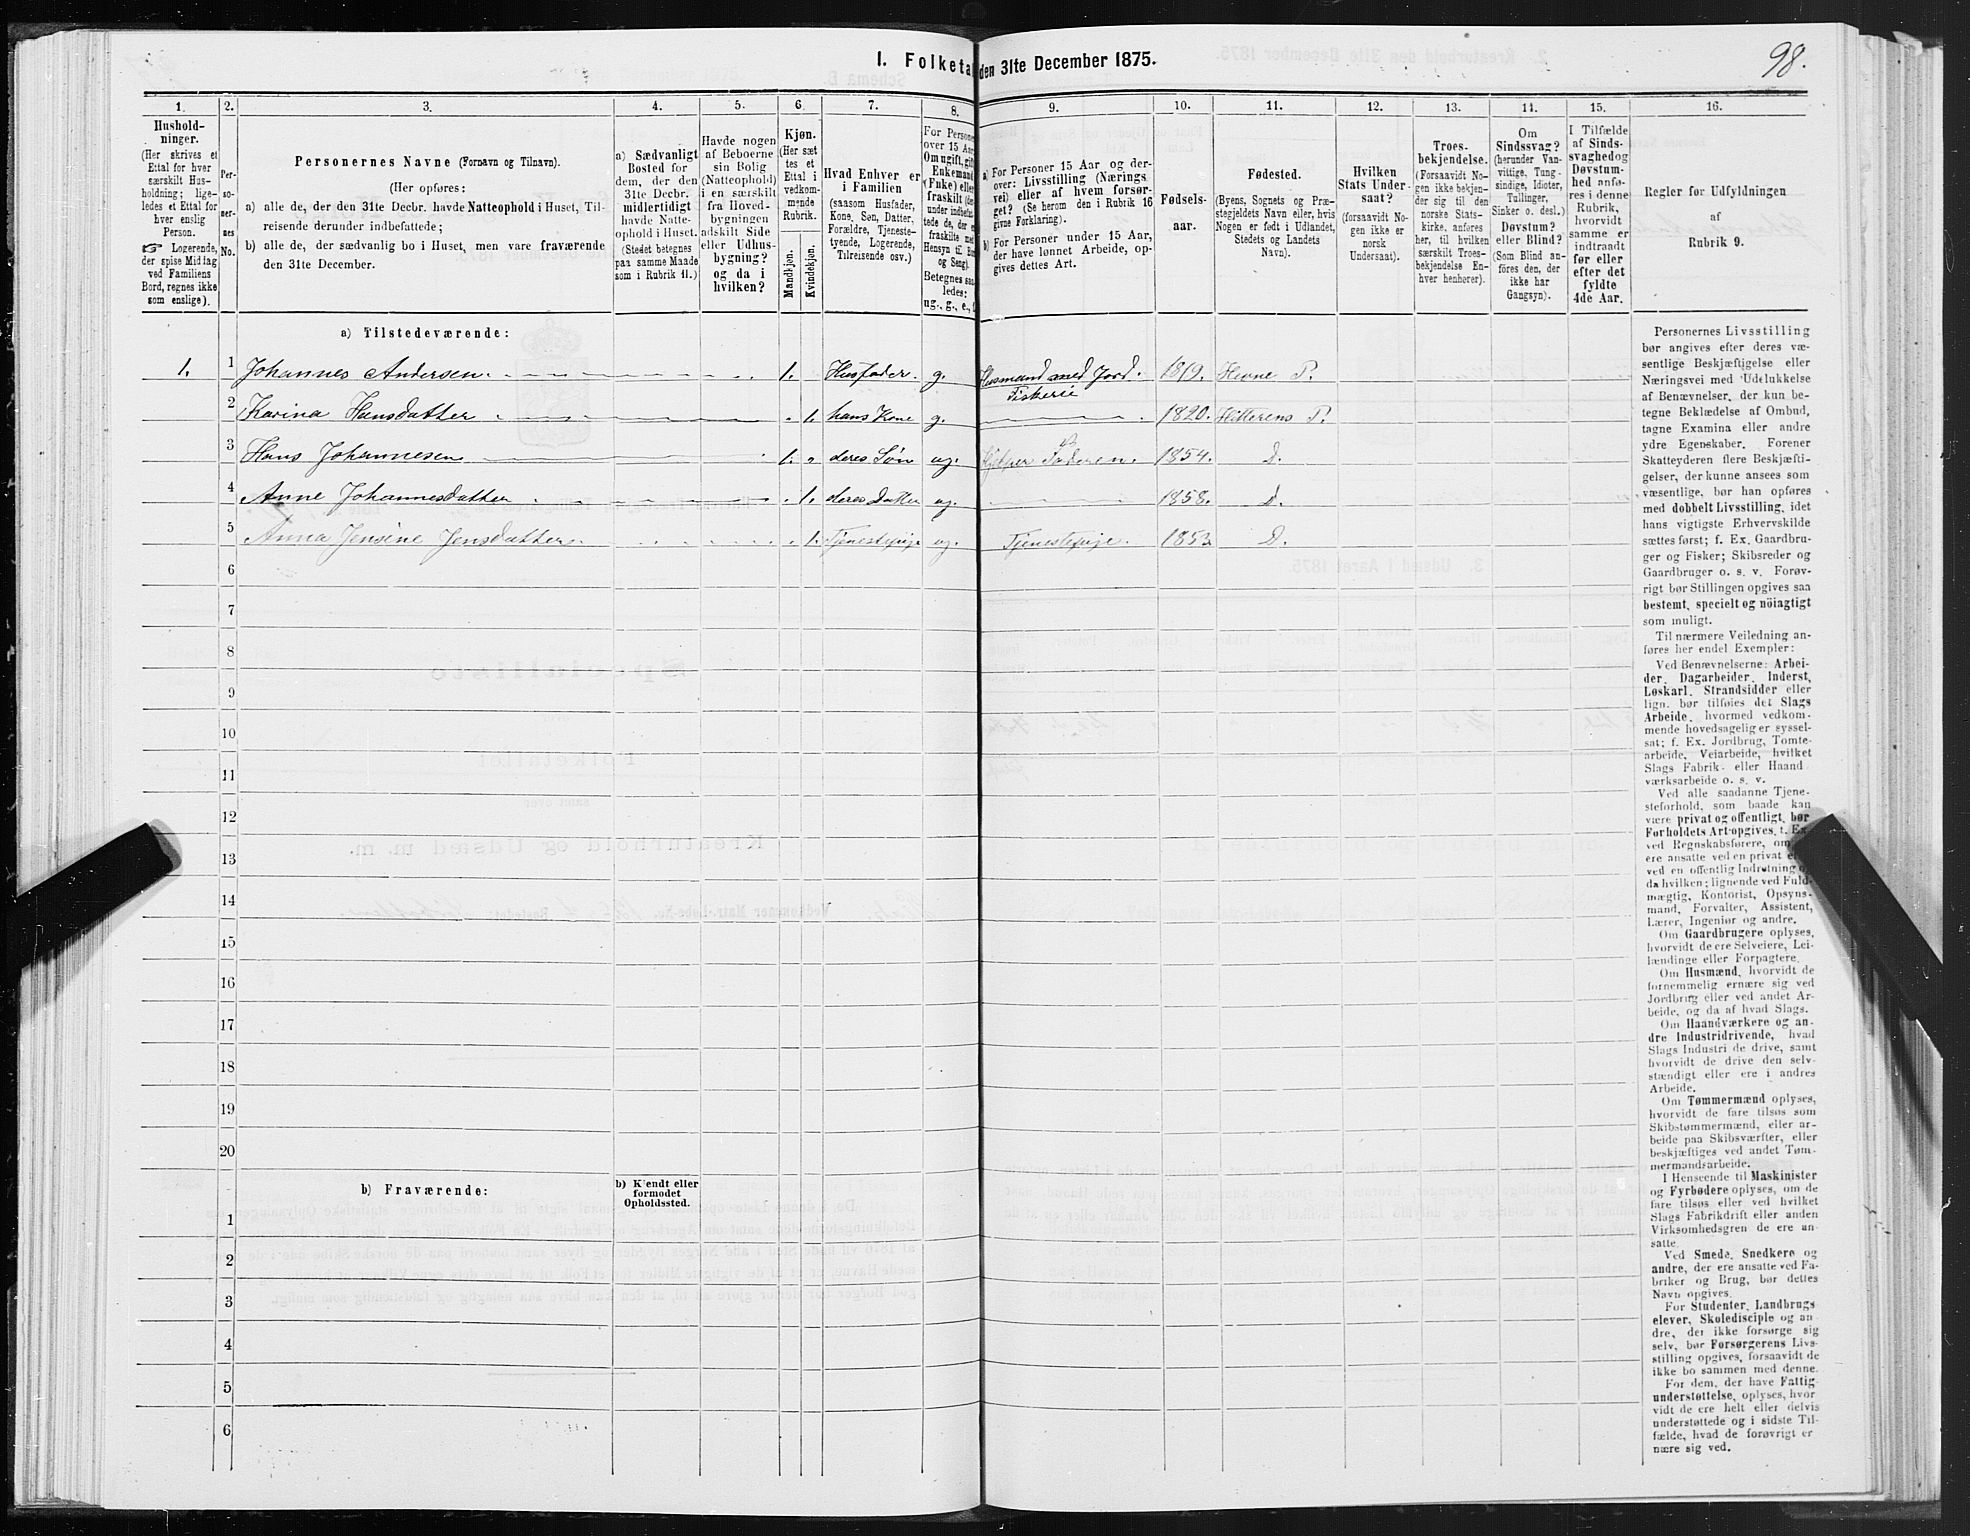 98.
I. Folketal den 31te December 1875.
1. 2. 3. 4. 5. 6. 7. 8. 9. 10. 11. 12. 13. 14. 15. 16.
Hushold-
ninger.
(Her skrives et
Ettal for hver
særskilt Hus-
holdning; lige-
ledes et Ettal for
hver enslig
Person.
☞ Logerende,
der spise Middag
ved Familiens
Bord, regnes ikke
som enslige).
Per-
so-
ner-
nes
No.
Personernes Navne (Fornavn og Tilnavn).
(Her opføres:
a) alle de, der den 31te Decbr. havde Natteophold i Huset, Til-
reisende derunder indbefattede;
b) alle de, der sædvanlig bo i Huset, men vare fraværende
den 31te December.
a) Sædvanligt
Bosted for
dem, der den
31te Decbr.
midlertidigt
havde Natte-
ophold i Huset.
(Stedet betegnes
paa samme Maade
som i Rubrik 11.)
Havde nogen
af Beboerne
sin Bolig
(Natteophold)
i en særskilt
fra Hoved-
bygningen
adskilt Side
eller Udhus-
bygning?
og da i
hvilken?
Kjøn.
(Her sæt
tes et
Ettal i
vedkom-
mende
Rubrik.
Mandkjøn.
Kvindekjøn.
Hvad Enhver er
i Familien
(saasom Husfader,
Kone, Søn, Datter,
Forældre, Tjeneste-
tyende, Logerende,
Tilreisende osv.)
For Personer
over 15 Aar:
Om ugift, gift,
Enkemand
(Enke) eller
fraskilt (der-
under indbefat-
tede de, der ere
fraskilte med
Hensyn til Bord
og Seng).
Betegnes saa-
ledes:
ug., g., e.,
a) For Personer 15 Aar og der-
over: Livsstilling (Nærings
vei) eller af hvem forsør-
get? (Se herom den i Rubrik 16
givne Forklaring).
b) For Personer under 15 Aar,
der have lønnet Arbeide, op-
gives dettes Art.
Fødsels-
aar.
Fødested.
(Byens, Sognets og Præ-
stegjeldets Navn eller, hvis
Nogen er født i Udlandet,
Stedets og Landets
Navn).
Hvilken
Stats Under-
saat?
(forsaavidt No-
gen ikke er
norsk
Undersaat).
Troes-
bekjendelse.
(Forsaavidt No-
gen ikke bekjen-
der sig til den
norske Stats-
kirke, anføres
her, til hvilken
særskilt Troes-
bekjendelse En-
hver henhører).
Om
Sindssvag?
(herunder Van-
vittige, Tung-
sindige, Idioter,
Tullinger,
Sinker o. desl.)
Døvstum?
eller Blind?
(Som Blind an-
føres den, der
ikke har
Gangsyn).
I Tilfælde
af Sinds-
svaghed og
Døvstum-
hed anfø-
res i denne
Rubrik,
hvorvidt
samme er
indtraadt
før eller
efter det
fyldte
4de Aar.
Regler før Udfyldningen
af
Rubrik 9.
a) Tilstedeværende:
1. 1 Johannes Andersen. 1. Husfader. g. Husmand med Jord. Fiskerie 1819. Hevne P.
2 Karina Hansdatter 1. hans Kone g. 1820. Hitterens P.
3 Hans Johannesen 1. deres Søn ug. Hjelper Faderen. 1854. D.
4 Anne Johannesdatter 1. deres Datter ug. 1858. D.
5 Anna Jensine Jensdatter. 1. Tjenestepige ug. Tjenestepige. 1853 D.
6
7
8
9
10
11
12
13
14
15
16
17
18
19
20
b) Fraværende:
b) Kjendt eller
formodet
Opholdssted.
1
2
3
4
5
6
Personernes Livsstilling
bør angives efter deres væ-
sentlige Beskjæftigelse eller
Næringsvei med Udelukkelse
af Benævnelser, der kun be-
tegne Beklædelse af Ombud,
tagne Examina eller andre
ydre Egenskaber. Forener
Skatteyderen flere Beskjæfti-
gelser, der kunne ansees som
væsentlige, bør han opføres
med dobbelt Livsstilling, idet
hans vigtigste Erhvervskilde
sættes først; f. Ex. Gaardbru-
ger og Fisker; Skibsreder og
Gaardbruger o. s. v. Forøv-
rigt bør Stillingen opgives saa
bestemt, specielt og nöiagtigt
som muligt.
Til nærmere Veiledning an-
føres her endel Exempler:
Ved Benævnelserne: Arbei-
der, Dagarbeider, Inderst,
Løskarl, Strandsidder eller
lign. bør tilføies det Slags
Arbeide, hvormed vedkom-
mende hovedsagelig er syssel-
sat; f. Ex. Jordbrug, Tomte-
arbeide, Veiarbeide, hvilket
Slags Fabrik- eller Haand
værksarbeide o. s. v.
Ved alle saadanne Tjene-
steforhold, som baade kan
være privat og offentligt, bør
Forholdets Art opgives, f. Ex.
ved Regnskabsførere, om de
ere ansatte ved en privat eller
ved en offentlig Indretning og
da hvilken; lignende ved Fuld-
mægtig, Kontorist, Opsyns-
mand, Forvalter, Assistent,
Lærer, Ingeniør og andre.
Om Gaardbrugere oplyses,
hvorvidt de ere Selveiere, Lei-
lændinge eller Forpagtere.
Om Husmænd, hvorvidt de
fornemmelig ernære sig ved
Jordbrug eller ved andet Ar-
beide, og da af hvad Slags.
Om Haandværkere og an-
dre Industridrivende, hvad
Slags Industri de drive, samt
hvorvidt de drive den selv-
stændigt eller ere i andres
Arbeide.
Om Tømmermænd oplyses,
hvorvidt de fare tilsøs som
Skibstømmermænd, eller ar-
beide paa Skibsværfter, eller
beskjæftiges ved andet Tøm-
mermandsarbeide.
I Henseende til Maskinister
og Fyrbødere oplyses, om de
fare tilsøs eller ved hvilket
Slags Fabrikdrift eller anden
Virksomhedsgren de ere an-
satte.
Ved Smede, Snedkere og
andre, der ere ansatte ved Fa-
briker og Brug, bør dettes
Navn opgives.
For Studenter, Landbrugs
elever, Skoledisciple og an-
dre, der ikke forsørge sig
selv, bør Forsørgerens Livs-
stilling opgives, forsaavidt de
ikke bo sammen med denne.
For dem, der have Fattig
understøttelse, oplyses, hvor
vidt de ere helt eller delvis
understøttede og i sidste Til-
fælde, hvad de forøvrigt er
nære sig ved.